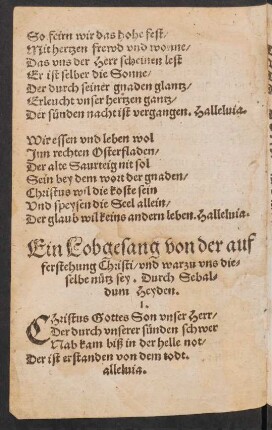 So feirn wir das hohe fest/
Mit hertzen frewd vnd wonne/
Das vns der Herr scheinen lest
Er ist selber die Sonne/
Der durch seiner gnaden glantz/
Erleucht vnser hertzen gantz/
Der sünden nacht ist vergangen. Halleluia.
Wir essen vnd leben wol
Inn rechten Osterfladen/
Der alte Saurteig nit sol
Sein bey dem wort der gnaden/
Christus wil die köste sein
Vnd speysen die Seel allein/
Der glaub wil keins andern leben. Halleluia.
Ein Lobgesang von der auf
ferstehung Christi/ vnd warzu vns die-
selbe nütz sey. Durch Sebal-
dum Heyden.
1.
CHristus Gottes Son vnser Herr/
Der durch vnserer sünden schwer
Nab kam biß in der helle not/
Der ist erstanden von dem todt.
alleluia.